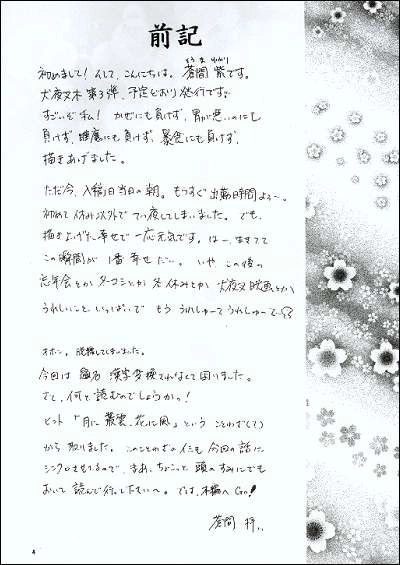 前記
初めまして！そして、こんにちは。蒼間 紫です。
犬夜叉本 第3弾、予定どおり発行です。
すごいぞ私！かぜにも負けず、胃が悪いのにも
負けず、睡魔にも負けず、暴食にも負けず、
描きあげました。
ただ今、入稿日当日の朝。もうすぐ出勤時間よ～～。
初めて休み以外で てつ夜してしまいました。でも、
描き上げた幸せで一応元気です。はー、ますてて
この瞬間が 1番幸せだ～。いや、この後の
忘年会とか 冬コミとか 冬休みとか 犬夜叉映画とか
うれしいこと いっぱいで もう うれしゅーて うれしゅーて～
オホン。脱線してしまいました。
今回は 題名 漢字変換されなくて困りました。
さて、何と読むのでしょうか！
ヒント「月に叢雲、花に風」という ことわざ
から 取りました。このことわざのイミも 今回の話に
シンクロさせてるので、まあ、ちょこっと 頭のすみにでも
おいて 読んで行って下さいへ。では、本編へ Go!
蒼間 拝
4